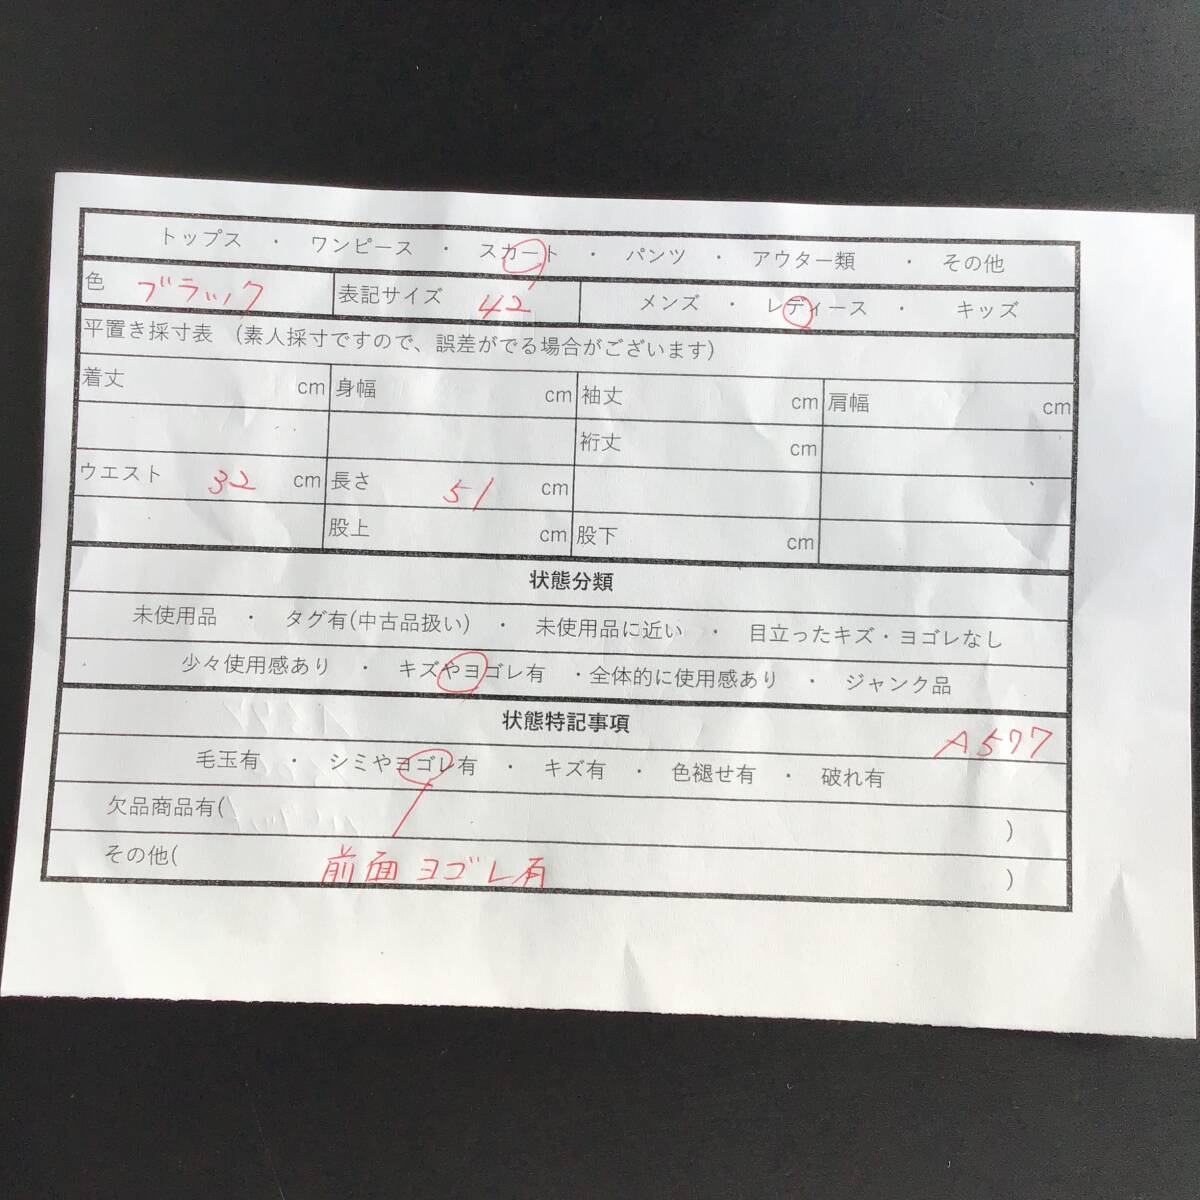 トップス ・ ワンピース ・ スカート ・ パンツ ・ アウター類 ・ その他
色 ブラック 表記サイズ 42 メンズ ・ レディース ・ キッズ
平置き採寸表 (素人採寸ですので、誤差がでる場合がございます)
着丈 cm 身幅 cm 袖丈 cm 肩幅 cm
裄丈 cm
ウエスト 32 cm 長さ 51 cm
股上 cm 股下 cm
状態分類
未使用品 ・ タグ有(中古品扱い) ・ 未使用品に近い ・ 目立ったキズ・ヨゴレなし
少々使用感あり ・ キズやヨゴレ有 ・全体的に使用感あり ・ ジャンク品
状態特記事項 A577
毛玉有 ・ シミやヨゴレ有 ・ キズ有 ・ 色褪せ有 ・ 破れ有
欠品商品有( )
その他( 前面ヨゴレ有 )